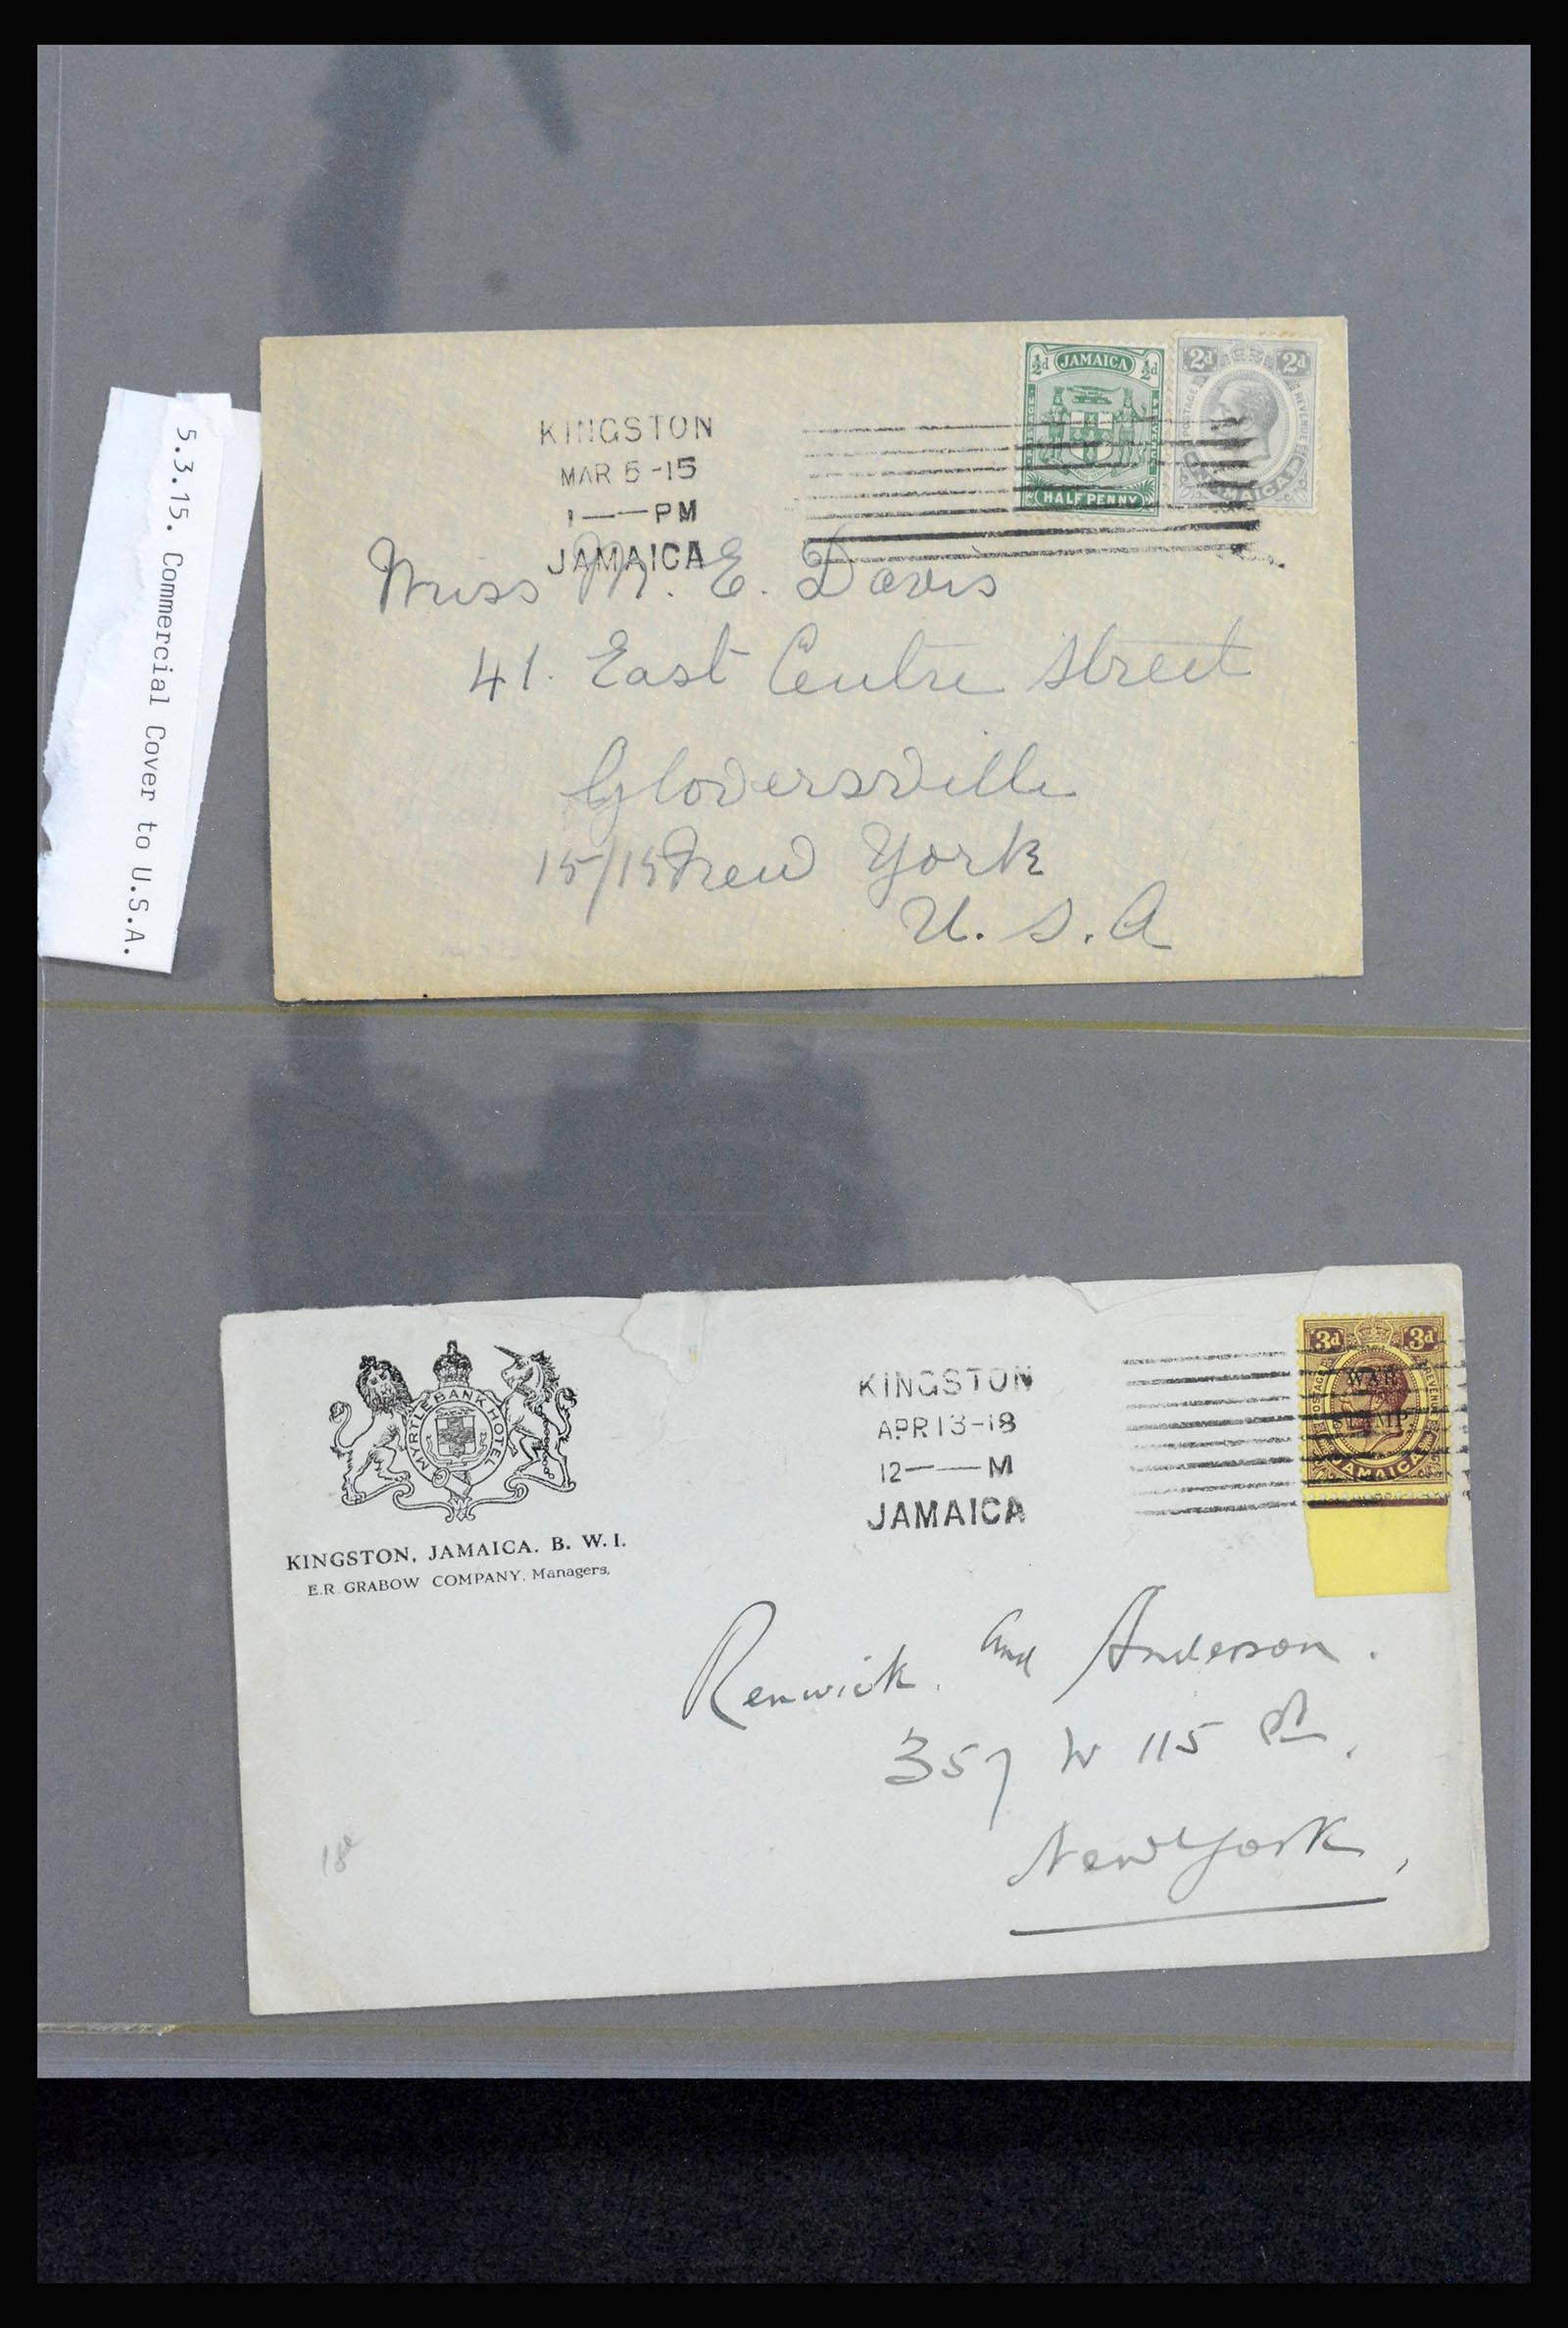 5.3.15. Commercial Cover to U.S.A.
½d JAMAICA ½d
HALF PENNY
2d 2d
POSTAGE REVENUE
JAMAICA
KINGSTON
MAR 5 -15
1 — PM
JAMAICA
Miss M. E. Davis
41. East Centre Street
Gloversville
15/15 New York
U. S. A
MYRTLE BANK HOTEL
KINGSTON, JAMAICA. B. W. I.
E.R. GRABOW COMPANY. Managers,
KINGSTON
APR 13-18
12 — M
JAMAICA
3d 3d
POSTAGE REVENUE
WAR
STAMP.
JAMAICA
Renwick and Anderson.
357 W 115 St.
New York,